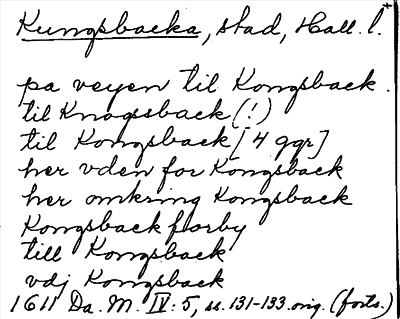 Kungsbacka, stad, Hall. l.
pa veyen til Kongsback.
til Knogssback (!)
til Kongsback [4 ggr]
her vden for Kongsback
her omkring Kongsback
Kongsback forby
till Kongsback
vdj Kongsback
1611 Da. M. IV: 5, ss. 131-133 orig. (forts.)